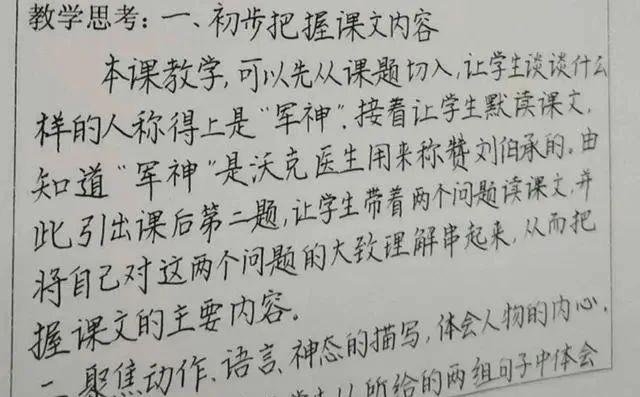 教学思考：一、初步把握课文内容
本课教学，可以先从课题切入，让学生谈谈什么
样的人称得上是“军神”。接着让学生默读课文，
知道“军神”是沃克医生用来称赞刘伯承的。由
此引出课后第二题，让学生带着两个问题读课文，并
将自己对这两个问题的大致理解串起来，从而把
握课文的主要内容。
二、聚焦动作、语言、神态的描写，体会人物的内心。
学生从所给的两组句子中体会